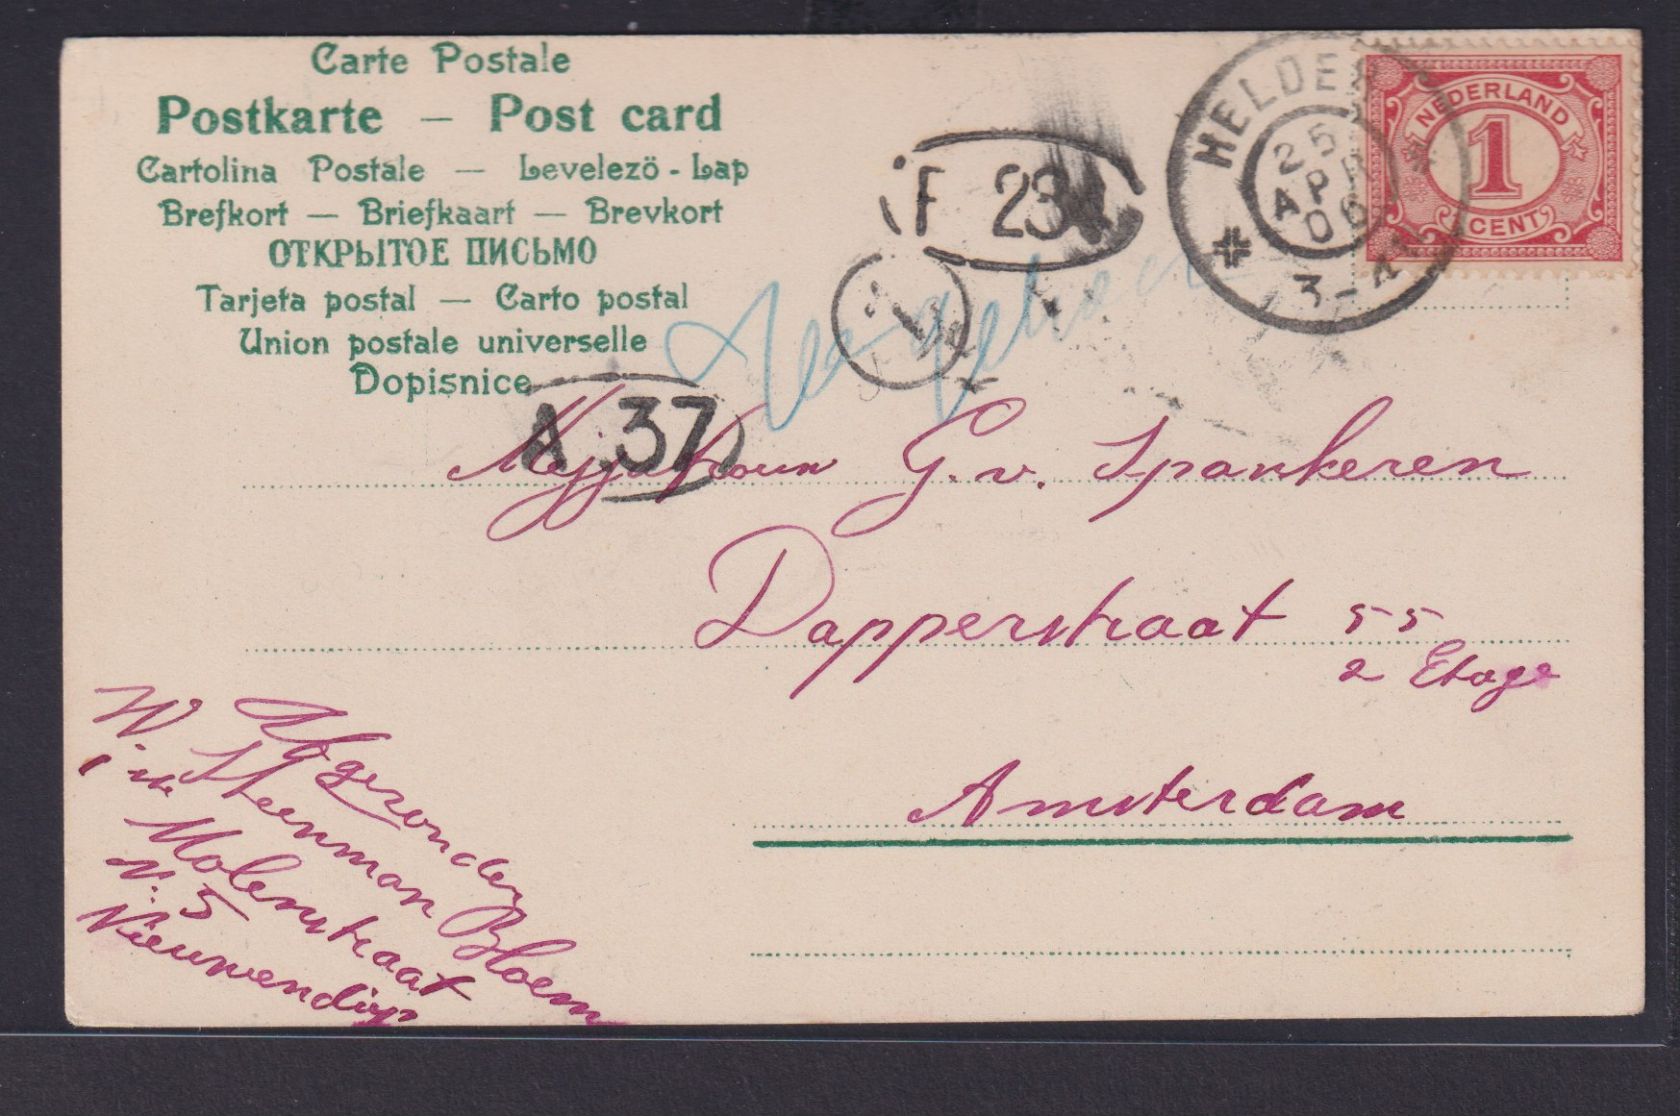 Carte Postale
Postkarte — Post card
Cartolina Postale — Levelezö - Lap
Brefkort — Briefkaart — Brevkort
ОТКРЫТОЕ ПИСЬМО
Tarjeta postal — Carto postal
Union postale universelle
Dopisnice
HELDER
25 APR 06
3-4
NEDERLAND
1
CENT
F 23
A.37
Mejjufrouw G. v. Spankeren
Dapperstraat 55
2 Etage
Amsterdam
Afgezonden
W. Steenman Bloem
in de Molenstraat
N. 5
Nieuwendiep